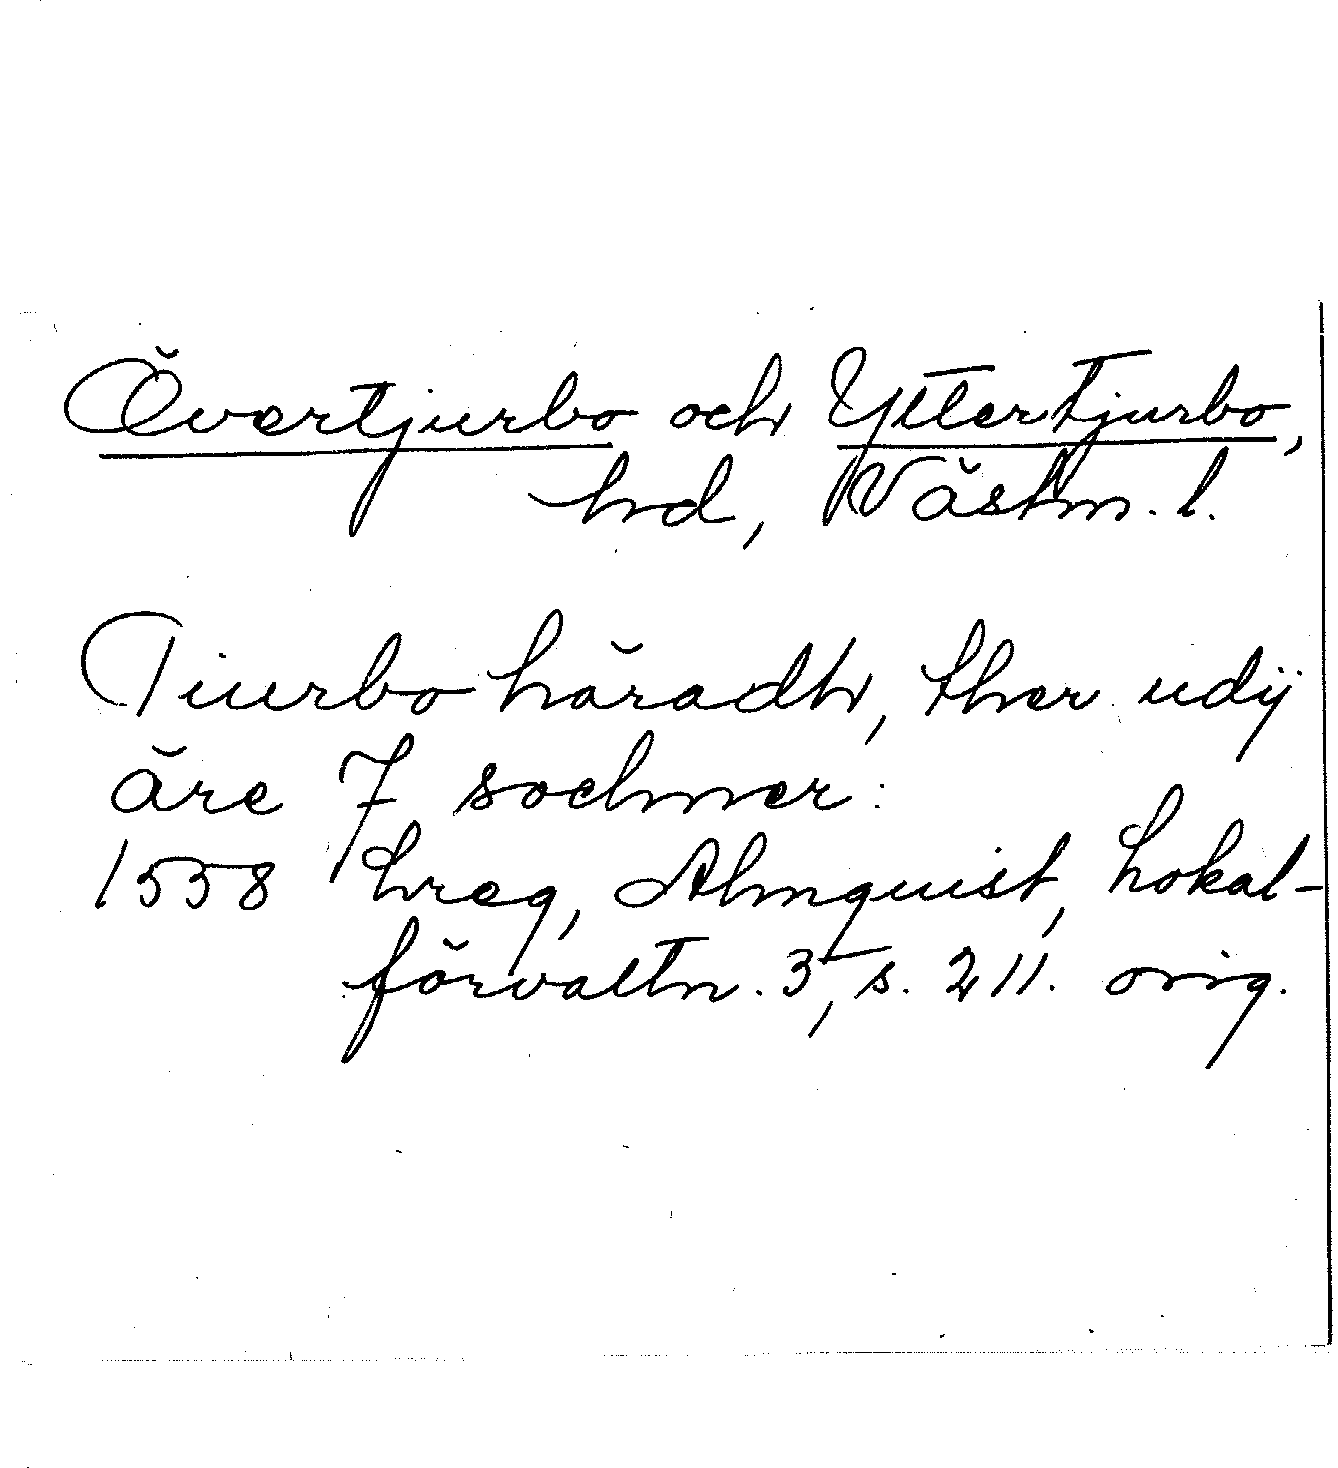 Övertjurbo och Yttertjurbo,
hrd, Västm. l.
Tiurbo häradh, ther udij
äre 7 sochner:
1558 hreg, Almquist, Lokal-
förvaltn. 3, s. 211. orig.